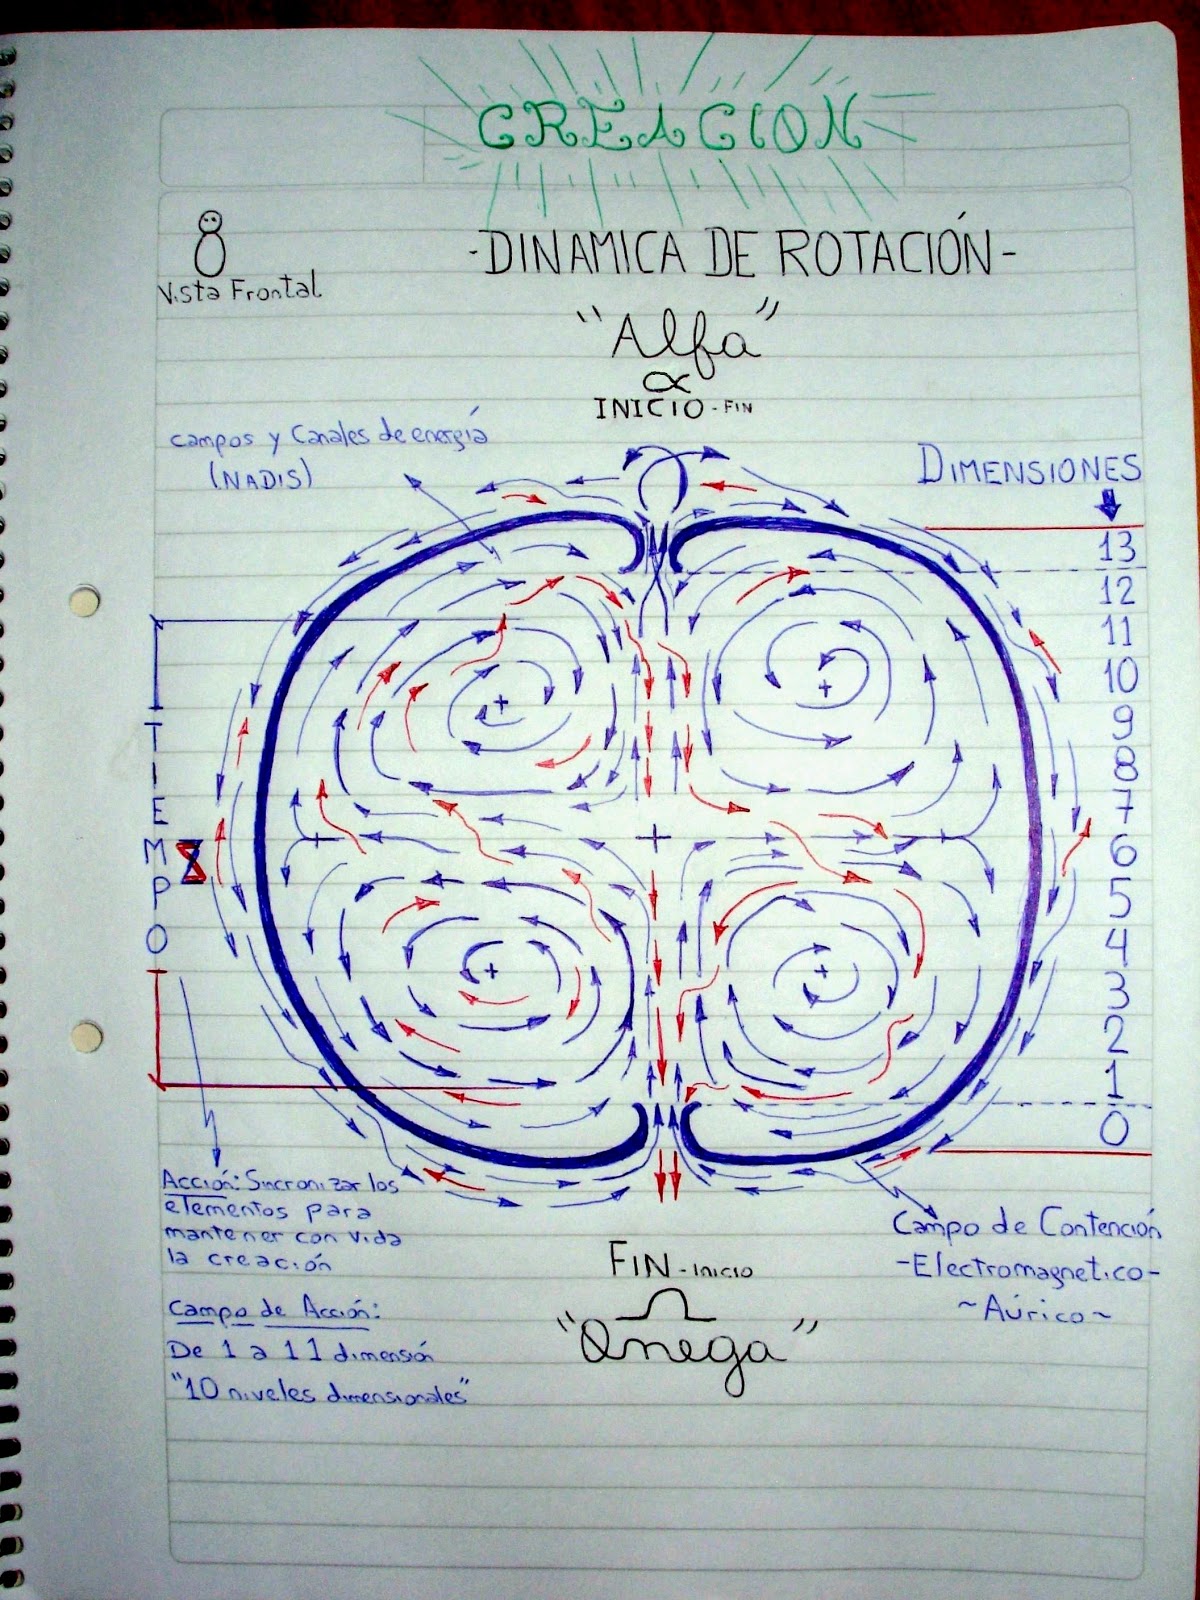 CREACION
-DINAMICA DE ROTACIÓN-
Vista Frontal
"Alfa"
∝
INICIO - FIN
campos y Canales de energía
(NADIS)
DIMENSIONES
13
12
11
10
9
8
7
6
5
4
3
2
1
0
TIEMPO
Acción: Sincronizar los
elementos para
mantener con vida
la creación
Campo de Acción:
De 1 a 11 dimensión
"10 niveles dimensionales"
FIN - INICIO
Ω
"Omega"
Campo de Contención
-Electromagnetico-
~Aúrico~